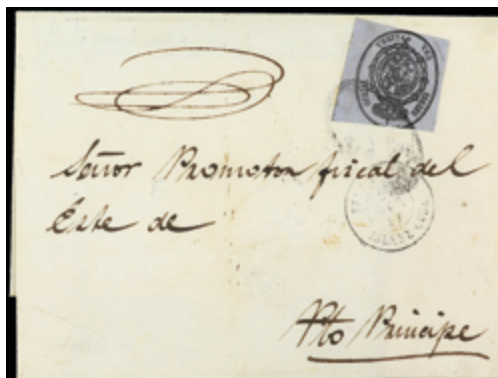 Señor Promotor fiscal del
Este de
Pto Principe